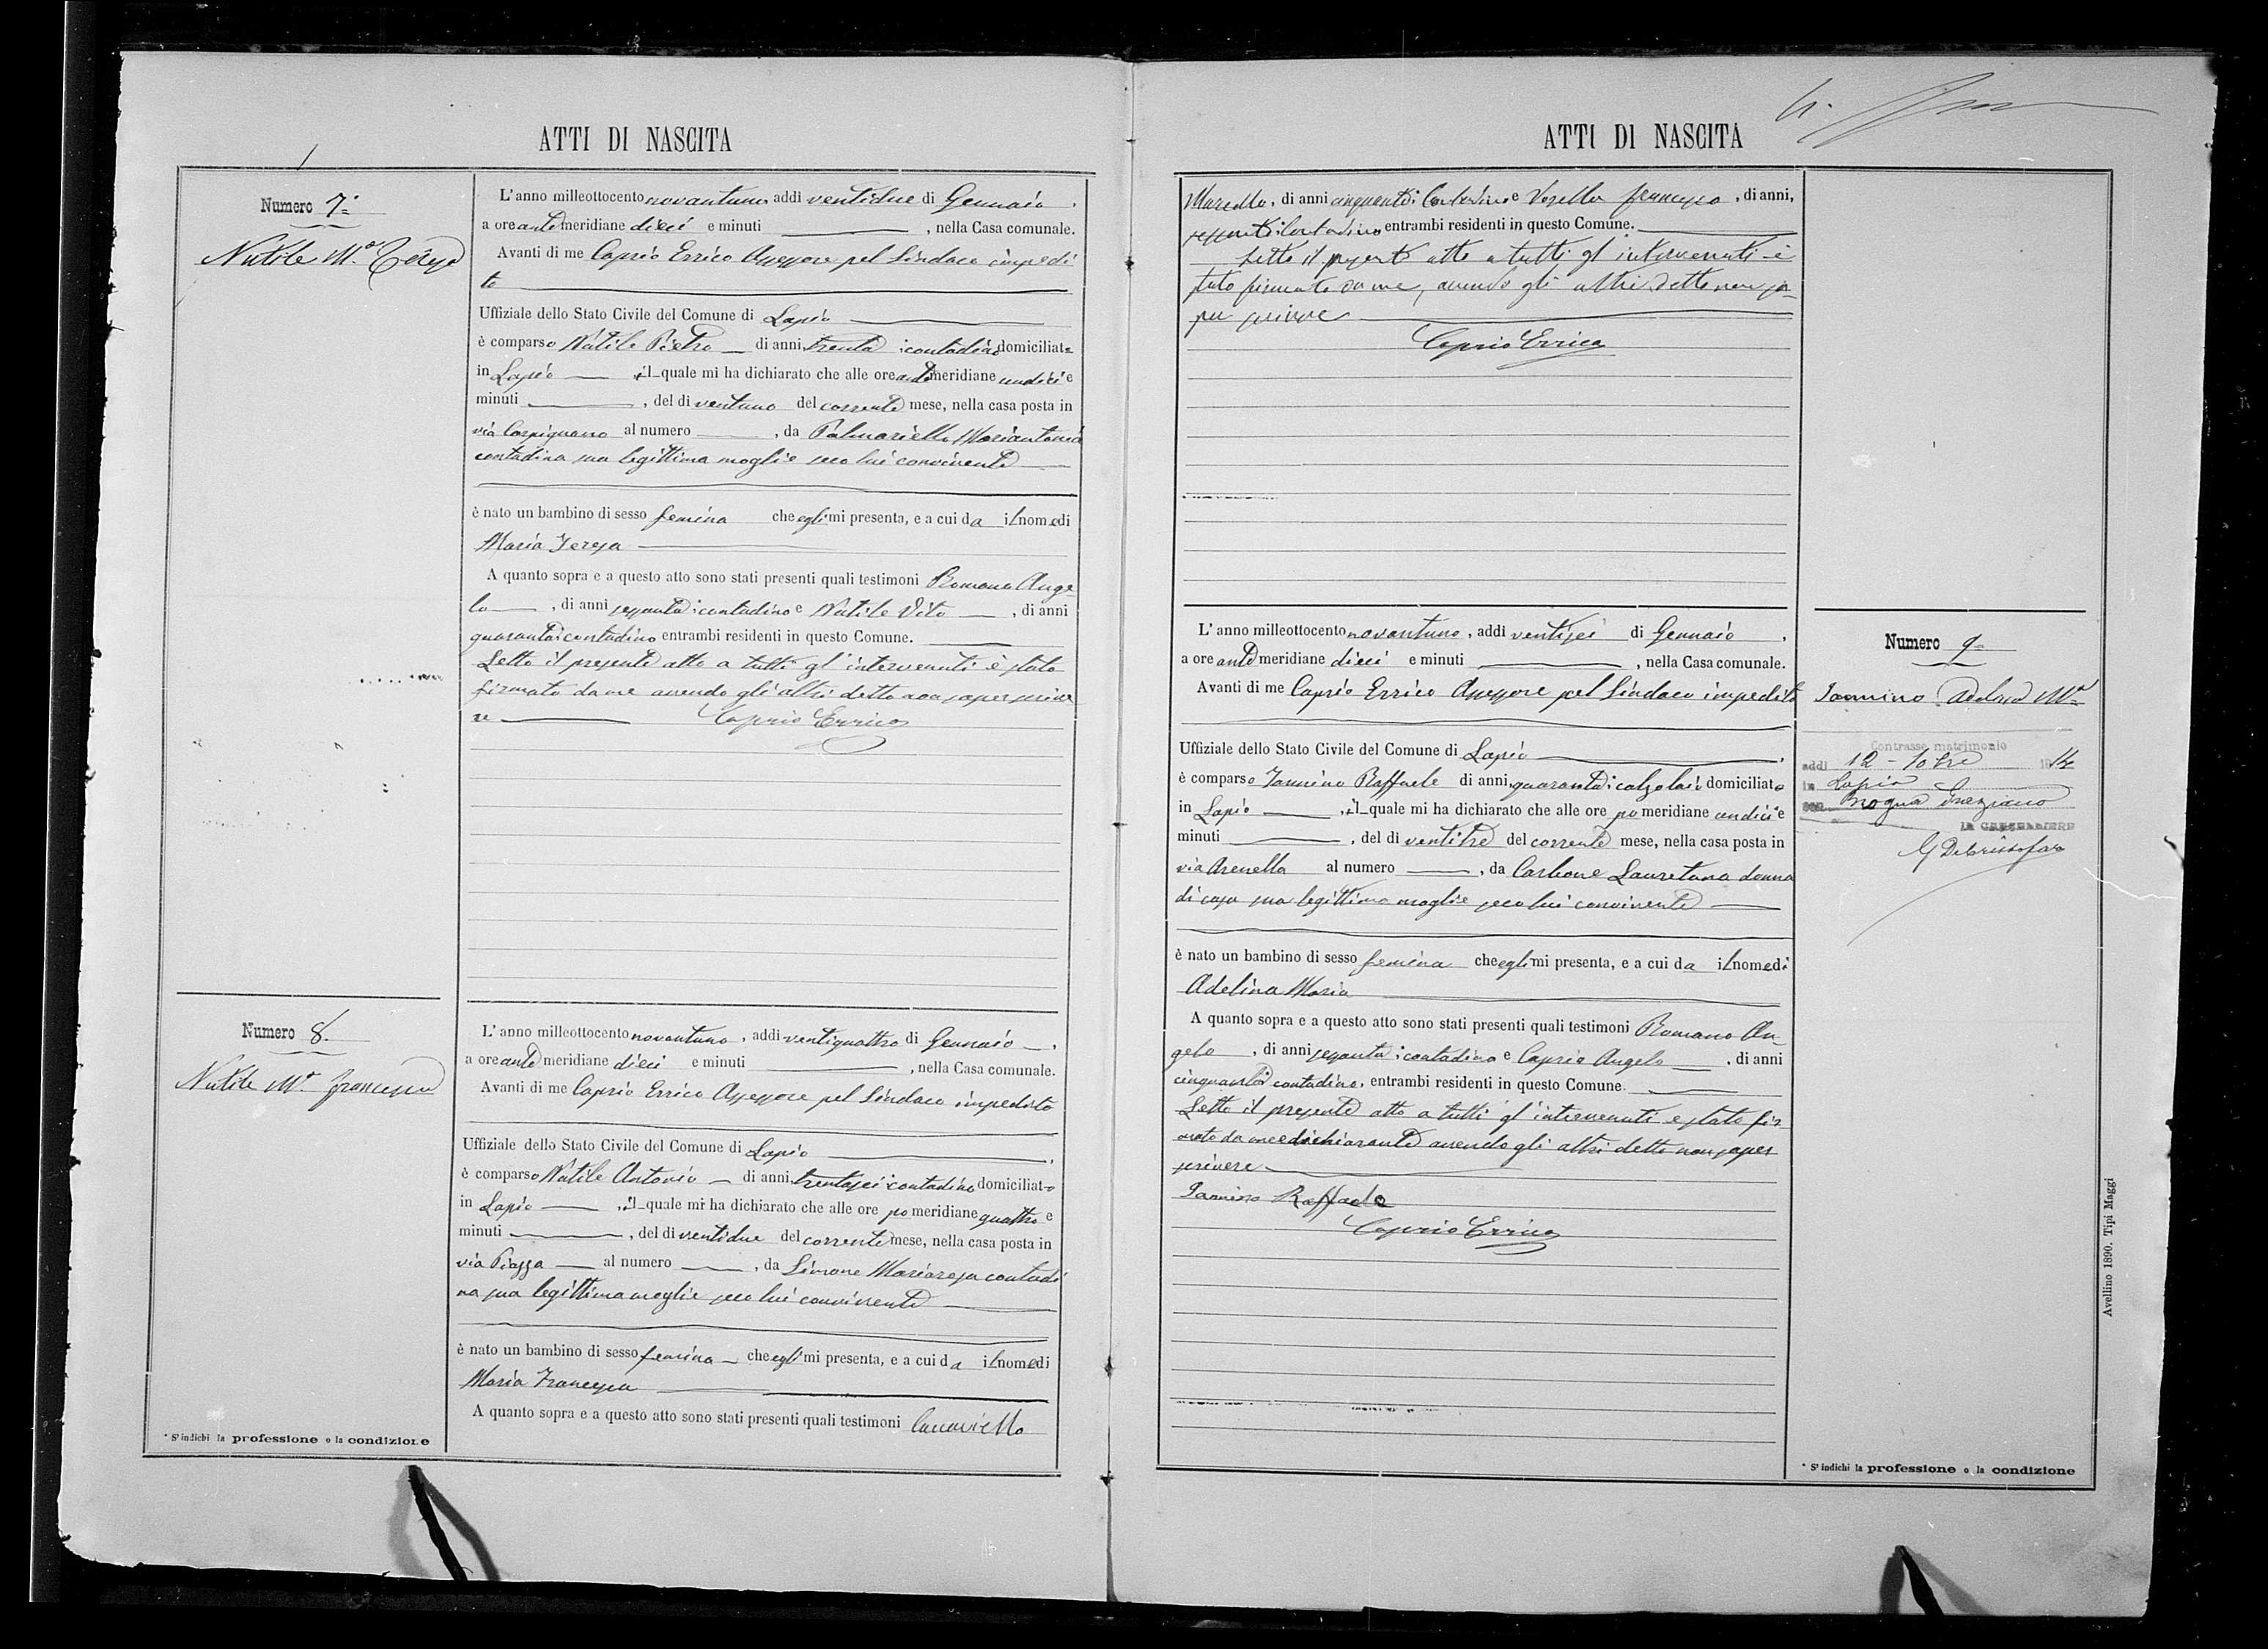 ATTI DI NASCITA
Numero 7.
Nutile M.a Teresa
L'anno milleottocento novantuno addì ventidue di Gennaio,
a ore antimeridiane dieci e minuti , nella Casa comunale.
Avanti di me Caprio Errico Assessore pel Sindaco impedi
to
Uffiziale dello Stato Civile del Comune di Lapio
è comparso Nutile Pietro di anni trenta contadino domiciliato
in Lapio il quale mi ha dichiarato che alle ore antimeridiane undici e
minuti , del dì ventuno del corrente mese, nella casa posta in
via Carpignano al numero , da Palmariello Mariantonia
contadina sua legittima moglie seco lui convivente
è nato un bambino di sesso femina che egli mi presenta, e a cui da il nome di
Maria Teresa
A quanto sopra e a questo atto sono stati presenti quali testimoni Romano Ange
lo , di anni sessanta contadino e Nutile Vito , di anni
quaranta contadino entrambi residenti in questo Comune.
Letto il presente atto a tutti gl'intervenuti è stato
firmato da me avendo gli altri detto non saper scrive
re Caprio Errico
Numero 8.
Nutile M.a Francesca
L'anno milleottocento novantuno, addì ventiquattro di Gennaio,
a ore antimeridiane dieci e minuti , nella Casa comunale.
Avanti di me Caprio Errico Assessore pel Sindaco impedito
Uffiziale dello Stato Civile del Comune di Lapio,
è comparso Nutile Antonio di anni trentasei contadino domiciliato
in Lapio , il quale mi ha dichiarato che alle ore pomeridiane quattro e
minuti , del dì ventidue del corrente mese, nella casa posta in
via Piazza al numero , da Simone Mariarosa contadi
na sua legittima moglie seco lui convivente
è nato un bambino di sesso femina che egli mi presenta, e a cui da il nome di
Maria Francesca
A quanto sopra e a questo atto sono stati presenti quali testimoni
* S'indichi la professione o la condizione
ATTI DI NASCITA
, di anni cinquanta Contadino e Francesco, di anni,
sessanta contadino entrambi residenti in questo Comune.
Letto il presente atto a tutti gl'intervenuti è
stato firmato da me, avendo gli altri detto non sa
per scrivere
Caprio Errico
L'anno milleottocento novantuno, addì ventisei di Gennaio,
a ore antimeridiane dieci e minuti , nella Casa comunale.
Avanti di me Caprio Errico Assessore pel Sindaco impedito
Uffiziale dello Stato Civile del Comune di Lapio,
è comparso Iannino Raffaele di anni quaranta calzolaio domiciliato
in Lapio , il quale mi ha dichiarato che alle ore pomeridiane undici e
minuti , del dì ventitre del corrente mese, nella casa posta in
via Arenella al numero , da Carbone Lauretana donna
di casa sua legittima moglie seco lui convivente
è nato un bambino di sesso femina che egli mi presenta, e a cui da il nome di
Adelina Maria
A quanto sopra e a questo atto sono stati presenti quali testimoni Romano An-
gelo , di anni sessanta contadino e Caprio Angelo , di anni
cinquanta contadino, entrambi residenti in questo Comune.
Letto il presente atto a tutti gl'intervenuti è stato fir
mato da me e dichiarante avendo gli altri detto non saper
scrivere
Iannino Raffaele
Caprio Errico
Numero 9
Iannino Adelina M.a
Contrasse matrimonio
addì 12 - 10bre 1914
in Lapio
con
IL CANCELLIERE
* S'indichi la professione o la condizione
Avellino 1890. Tipi Maggi